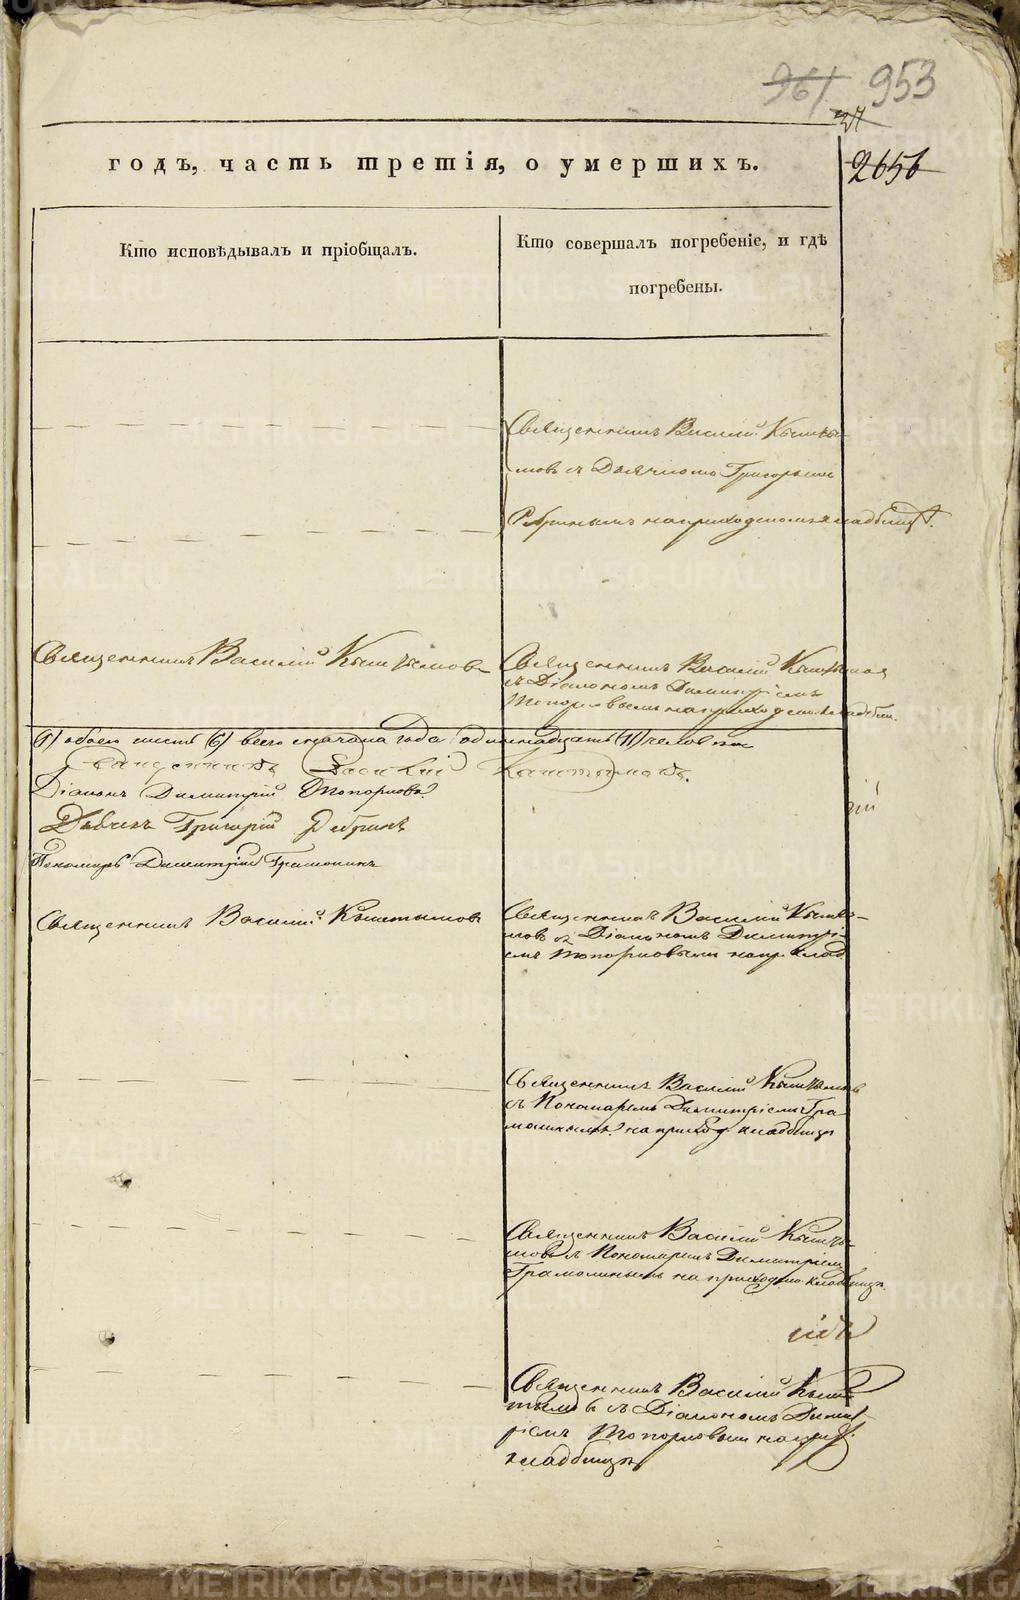 961 953
37
2656
годъ, часть третія, о умершихъ.
Кто исповѣдывалъ и пріобщалъ.
Кто совершалъ погребеніе, и гдѣ
погребены.
Священникъ Василій Кышты-
мовъ съ Дьячкомъ Григорьемъ
Ребринымъ на приходскомъ кладбищѣ.
Священникъ Василій Кыштымовъ
Священникъ Василій Кыштымов
съ Діакономъ Димитріемъ
Топорковымъ на приходском кладби.
обоего (6) всего сначала года одиннадцать (11) человѣкъ
Священникъ Василій Кыштымовъ.
Діаконъ Димитрій Топорковъ.
Дьячекъ Григорій Ребринъ
Пономарь Димитрій Грамолинъ
Священникъ Василій Кыштымовъ
Священникъ Василій Кышты-
мовъ съ Діакономъ Димитрі-
емъ Топорковымъ на пр. клад.
Священникъ Василій Кыштымовъ
съ Пономаремъ Димитріемъ Гра-
молинымъ на приход. кладбищѣ
Священникъ Василій Кышты-
мовъ съ Пономаремъ Димитріем
Грамолинымъ на приходско. кладбищѣ.
Священникъ Василій Кыш-
тымовъ съ Діакономъ Димит-
ріемъ Топорковым на прих.
кладбищѣ
METRIKI.GASO-URAL.RU